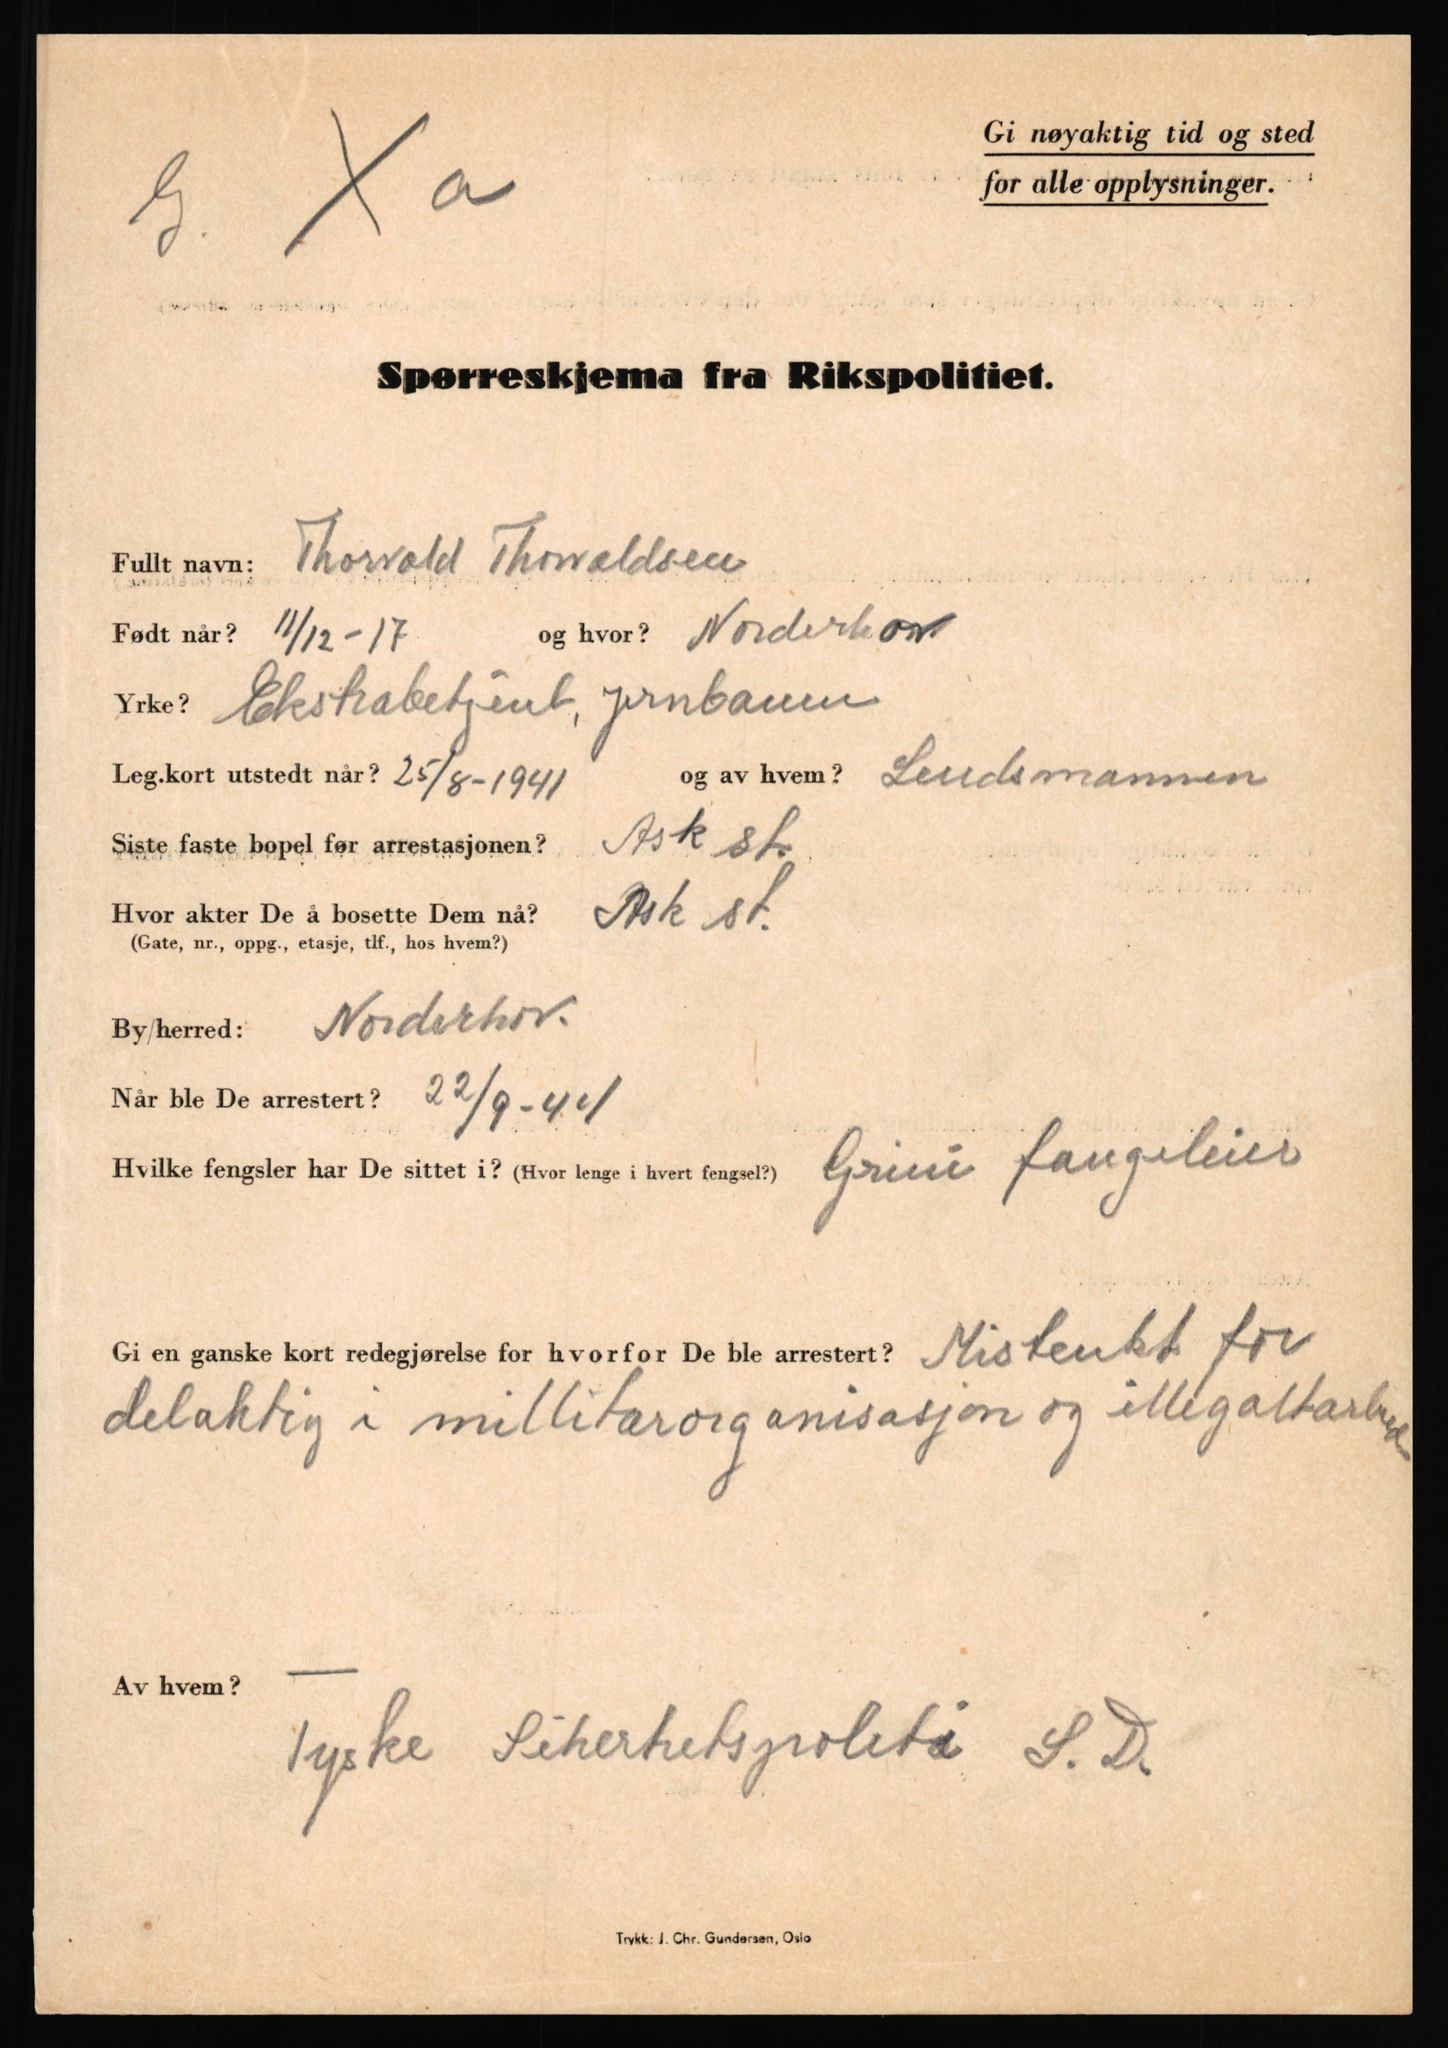 G. X a
Gi nøyaktig tid og sted
for alle opplysninger.
Spørreskjema fra Rikspolitiet.
Fullt navn: Thorvald Thorvaldsen
Født når? 11/12-17 og hvor? Norderhov
Yrke? Ekstrabetjent, jernbanen
Leg.kort utstedt når? 25/8-1941 og av hvem? Lendsmannen
Siste faste bopel før arrestasjonen? Ask st.
Hvor akter De å bosette Dem nå? Ask st.
(Gate, nr., oppg., etasje, tlf., hos hvem?)
By/herred: Norderhov.
Når ble De arrestert? 22/9-44
Hvilke fengsler har De sittet i? (Hvor lenge i hvert fengsel?) Grini fangeleier
Gi en ganske kort redegjørelse for hvorfor De ble arrestert? Mistenkt for
delaktig i millitærorganisasjon og illegaltarbed
Av hvem?
Tyske Sikerhetspoliti S. D.
Trykk: J. Chr. Gundersen, Oslo